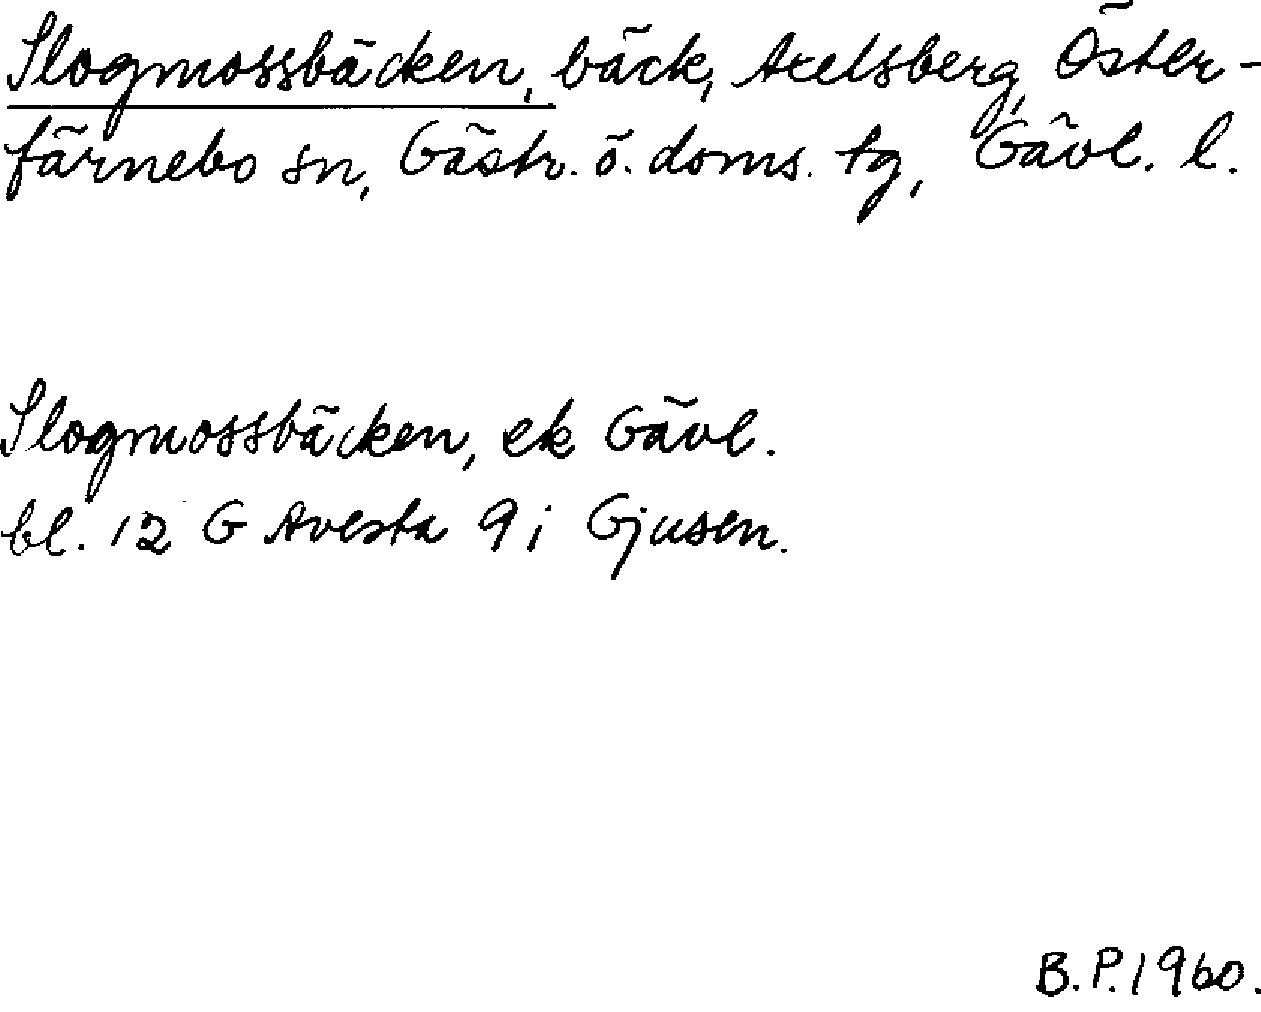 Slogmossbäcken, bäck, Axelsberg, Öster-
färnebo sn, Gästr. ö. doms. tg, Gävl. l.
Slogmossbäcken, ek Gävl.
bl. 12 G Avesta 9 i Gjusen.
B.P. 1960.